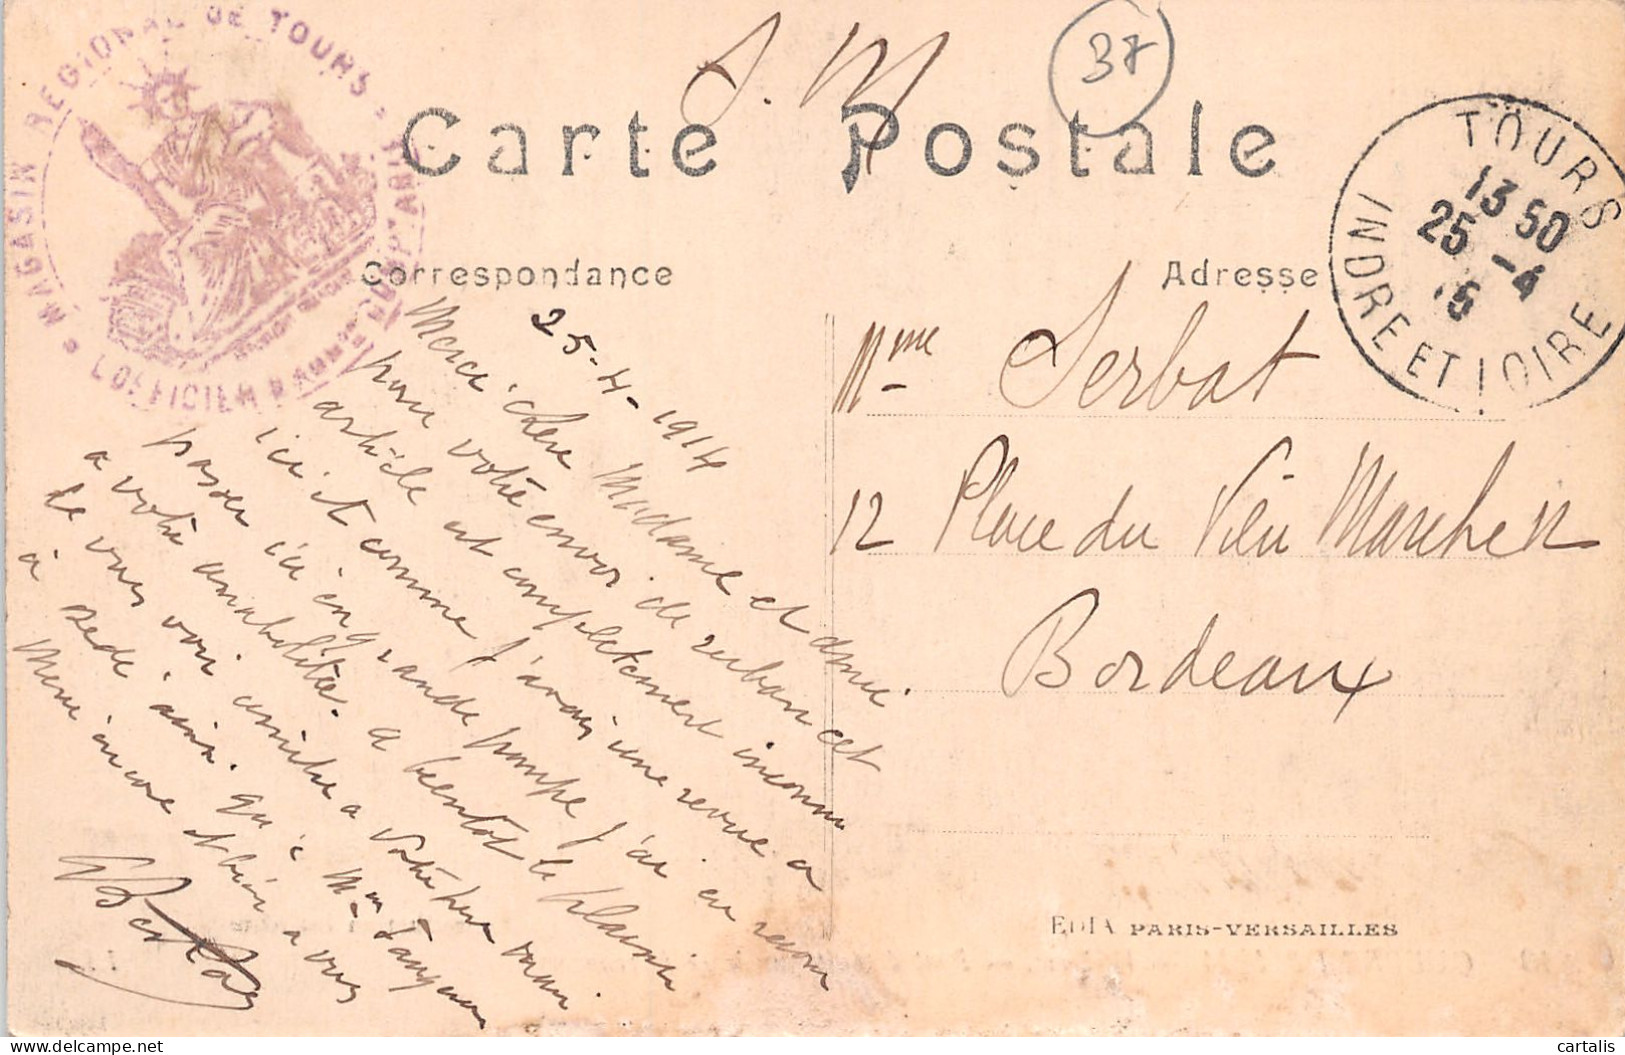 MAGASIN REGIONAL DE TOURS
L'OFFICIER D'ADMON COMPTABLE
S. M
37
Carte Postale
TOURS
13 50
25 -4
15
INDRE ET LOIRE
Correspondance
Adresse
25-4-1914
Merci chère Madame et amie
pour votre envoi de ruban cet
article est completement inconnu
ici et comme j'avais une revue a
passer ici en grande pompe j'ai eu recour
a votre amabilitée. a bientot le plaisir
de vous voir
à
ainsi qu'a Mme
Merci encore et bien a vous
Mme Serbat
12 Place du Vieu Marche
Bordeaux
EDIA PARIS-VERSAILLES
cartalis
delcampe.net